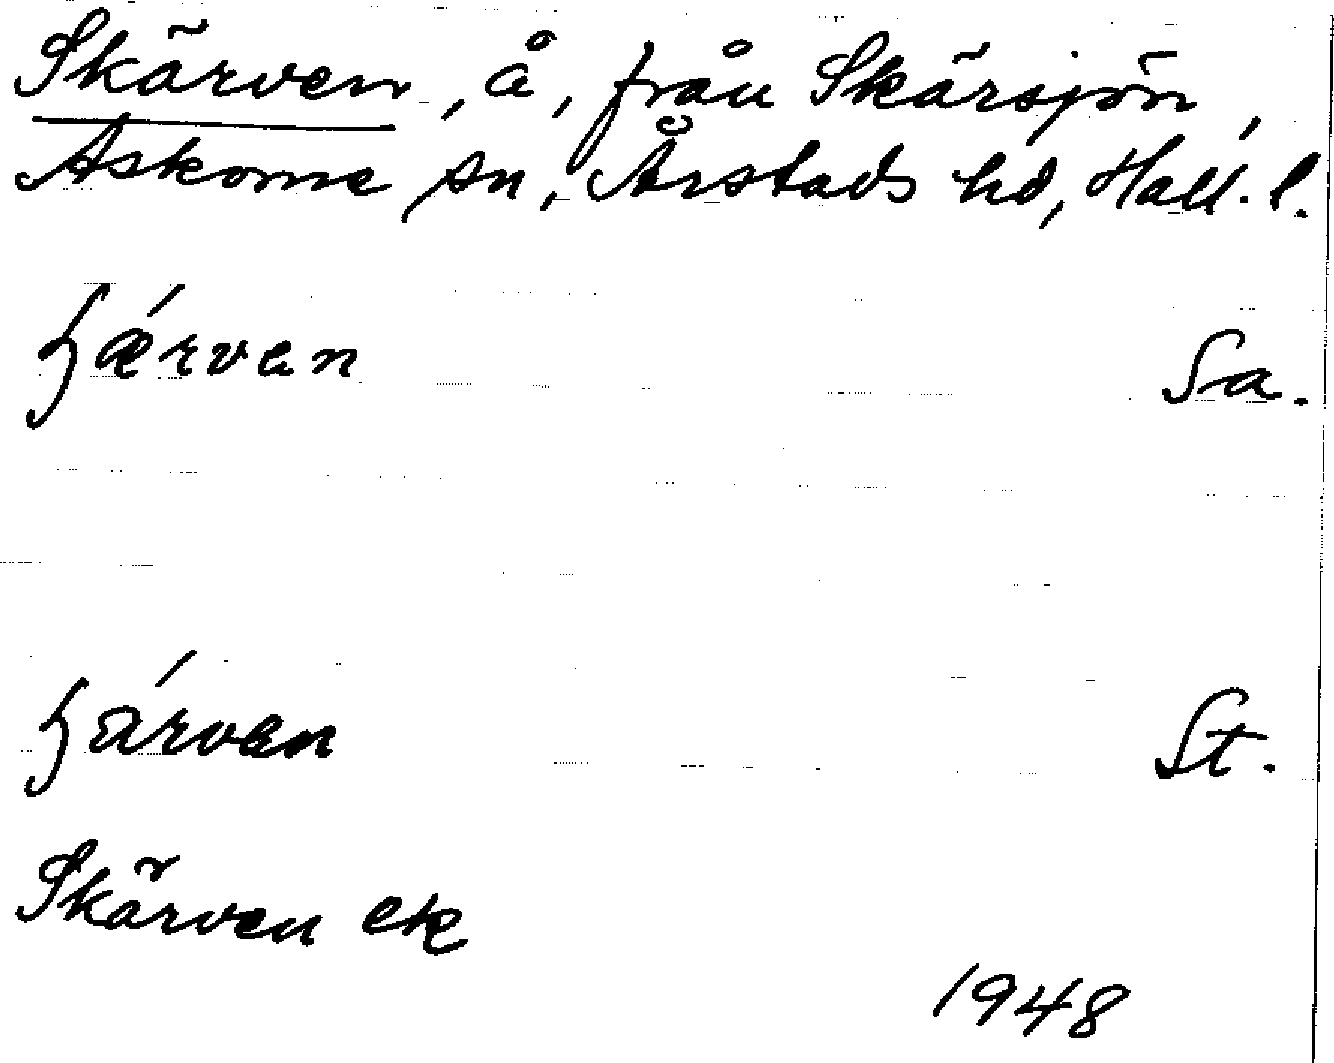 Skärven, å, från Skärsjön,
Askome sn, Årstads hd, Hall. l.
ɧǽrvan Sa.
ɧárvan St.
Skärven ek
1948